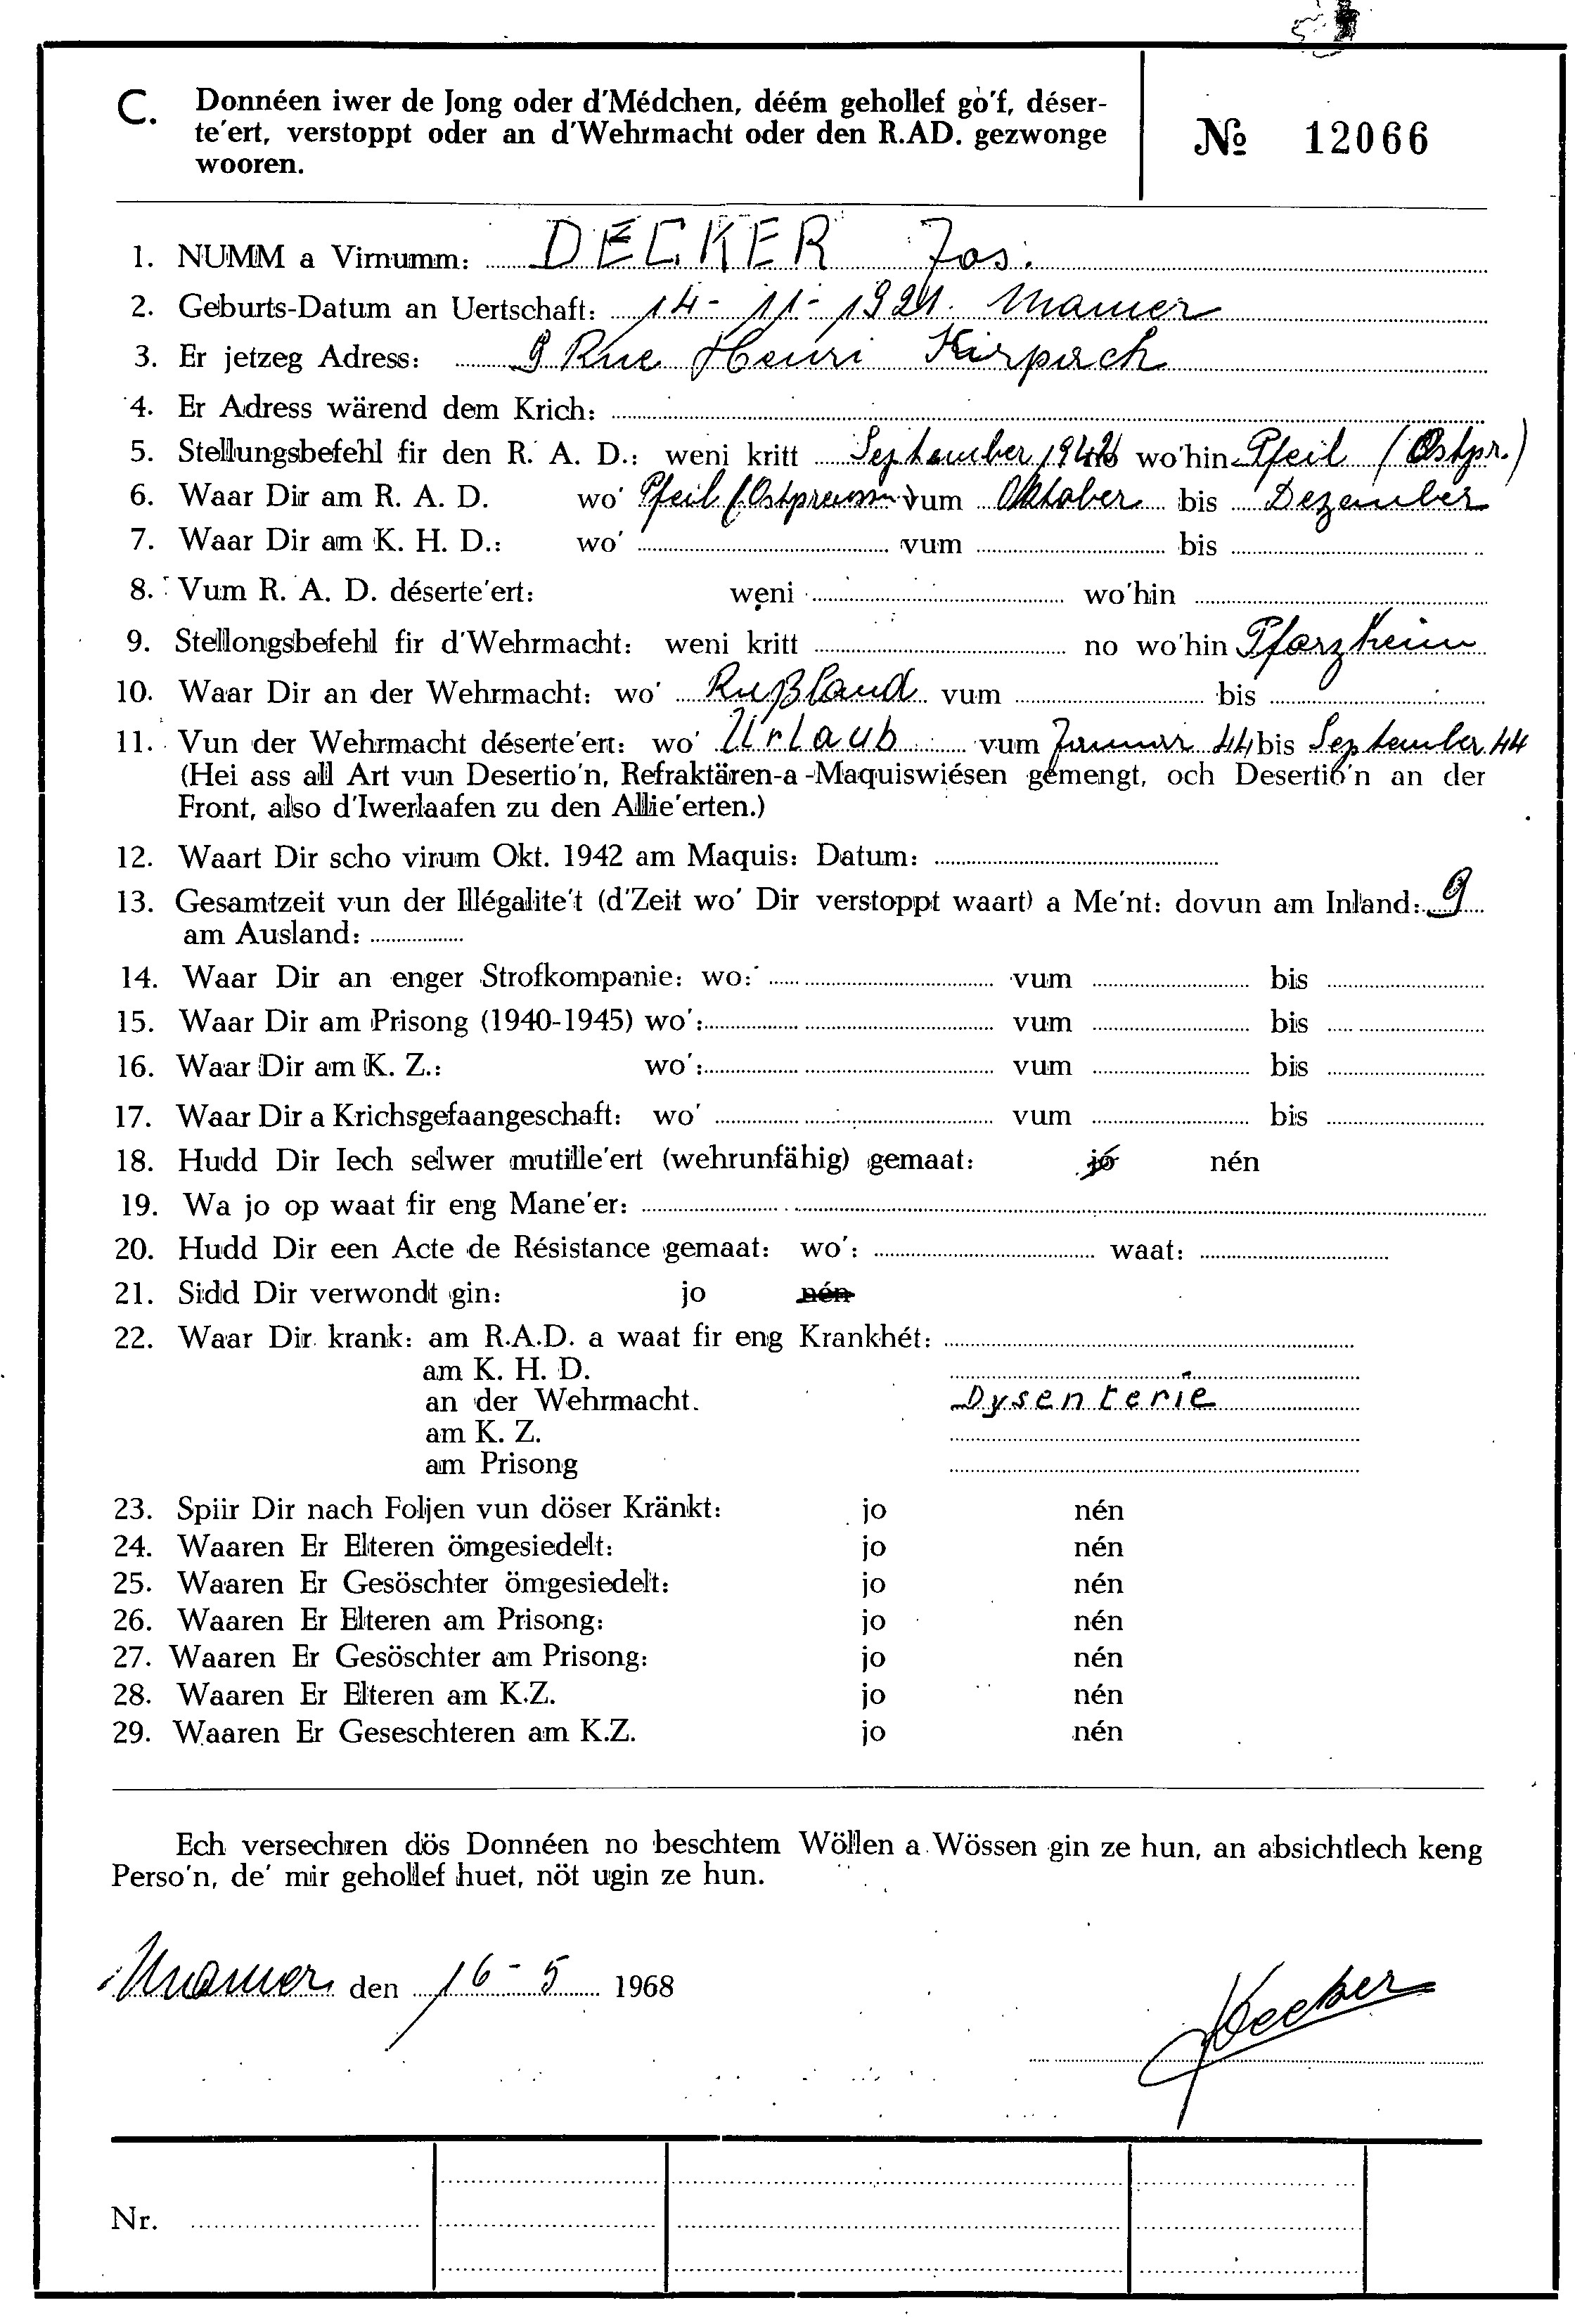 C. Donnéen iwer de Jong oder d'Médchen, déém gehollef go'f, déser-
te'ert, verstoppt oder an d'Wehrmacht oder den R.AD. gezwonge
wooren.
№ 12066
1. NUMM a Virnumm: DECKER Jos.
2. Geburts-Datum an Uertschaft: 14-11-1921. Mamer
3. Er jetzeg Adress: 9 Rue Henri Kirpach
4. Er Adress wärend dem Krich:
5. Stellungsbefehl fir den R. A. D.: weni kritt September 1942 no wo'hin Pfeil (Ostpr.)
6. Waar Dir am R. A. D. wo' Pfeil (Ostpreussen) vum Oktober bis Dezember
7. Waar Dir am K. H. D.: wo' vum bis
8. Vum R. A. D. déserte'ert: weni wo'hin
9. Stellongsbefehl fir d'Wehrmacht: weni kritt no wo'hin Pforzheim
10. Waar Dir an der Wehrmacht: wo' Rußland vum bis
11. Vun der Wehrmacht déserte'ert: wo' Urlaub vum Januar 44 bis September 44
(Hei ass all Art vun Desertio'n, Refraktären-a-Maquiswiésen gemengt, och Desertio'n an der
Front, also d'Iwerlaafen zu den Allie'erten.)
12. Waart Dir scho virum Okt. 1942 am Maquis: Datum:
13. Gesamtzeit vun der Illégalite't (d'Zeit wo' Dir verstoppt waart) a Me'nt: dovun am Inland: 9
am Ausland:
14. Waar Dir an enger Strofkompanie: wo:' vum bis
15. Waar Dir am Prisong (1940-1945) wo': vum bis
16. Waar Dir am K. Z.: wo': vum bis
17. Waar Dir a Krichsgefaangeschaft: wo' vum bis
18. Hudd Dir Iech selwer mutille'ert (wehrunfähig) gemaat: jo nén
19. Wa jo op waat fir eng Mane'er:
20. Hudd Dir een Acte de Résistance gemaat: wo': waat:
21. Sidd Dir verwondt gin: jo nén
22. Waar Dir krank: am R.A.D. a waat fir eng Krankhét:
am K. H. D.
an der Wehrmacht. Dysenterie
am K. Z.
am Prisong
23. Spiir Dir nach Foljen vun döser Kränkt: jo nén
24. Waaren Er Elteren ömgesiedelt: jo nén
25. Waaren Er Gesöschter ömgesiedelt: jo nén
26. Waaren Er Elteren am Prisong: jo nén
27. Waaren Er Gesöschter am Prisong: jo nén
28. Waaren Er Elteren am K.Z. jo nén
29. Waaren Er Geseschteren am K.Z. jo nén
Ech versechren dös Donnéen no beschtem Wöllen a Wössen gin ze hun, an absichtlech keng
Perso'n, de' mir gehollef huet, nöt ugin ze hun.
Mamer den 16-5 1968
JDecker
Nr.